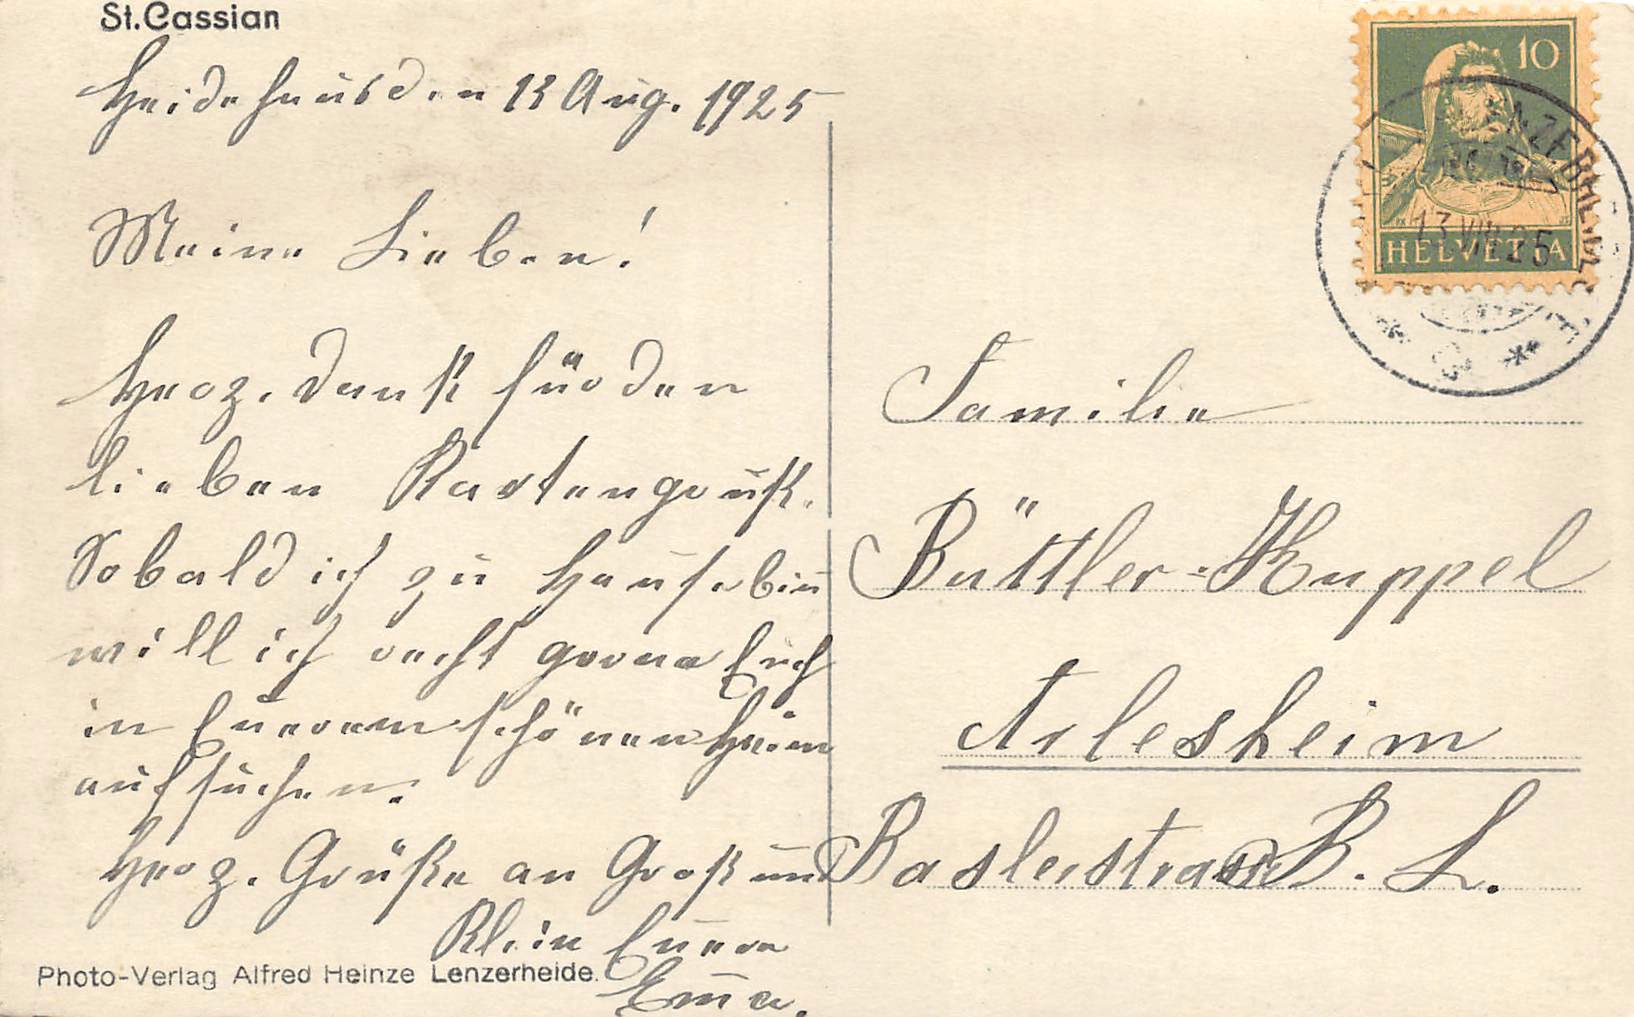 St. Cassian
Heidehaus den 13 Aug. 1925
Meine Lieben!
Herz. Dank für den
lieben Kartengruß.
Sobald ich zu Hause bin
will ich recht gerne Euch
in Euerem schönen Heim
aufsuchen.
Herz. Grüße an Groß und
Klein Euere
Emma.
Photo-Verlag Alfred Heinze Lenzerheide.
10
HELVETIA
13.VIII.25
Familie
Büttler-Huppel
Arlesheim
Baslerstrasse B. L.